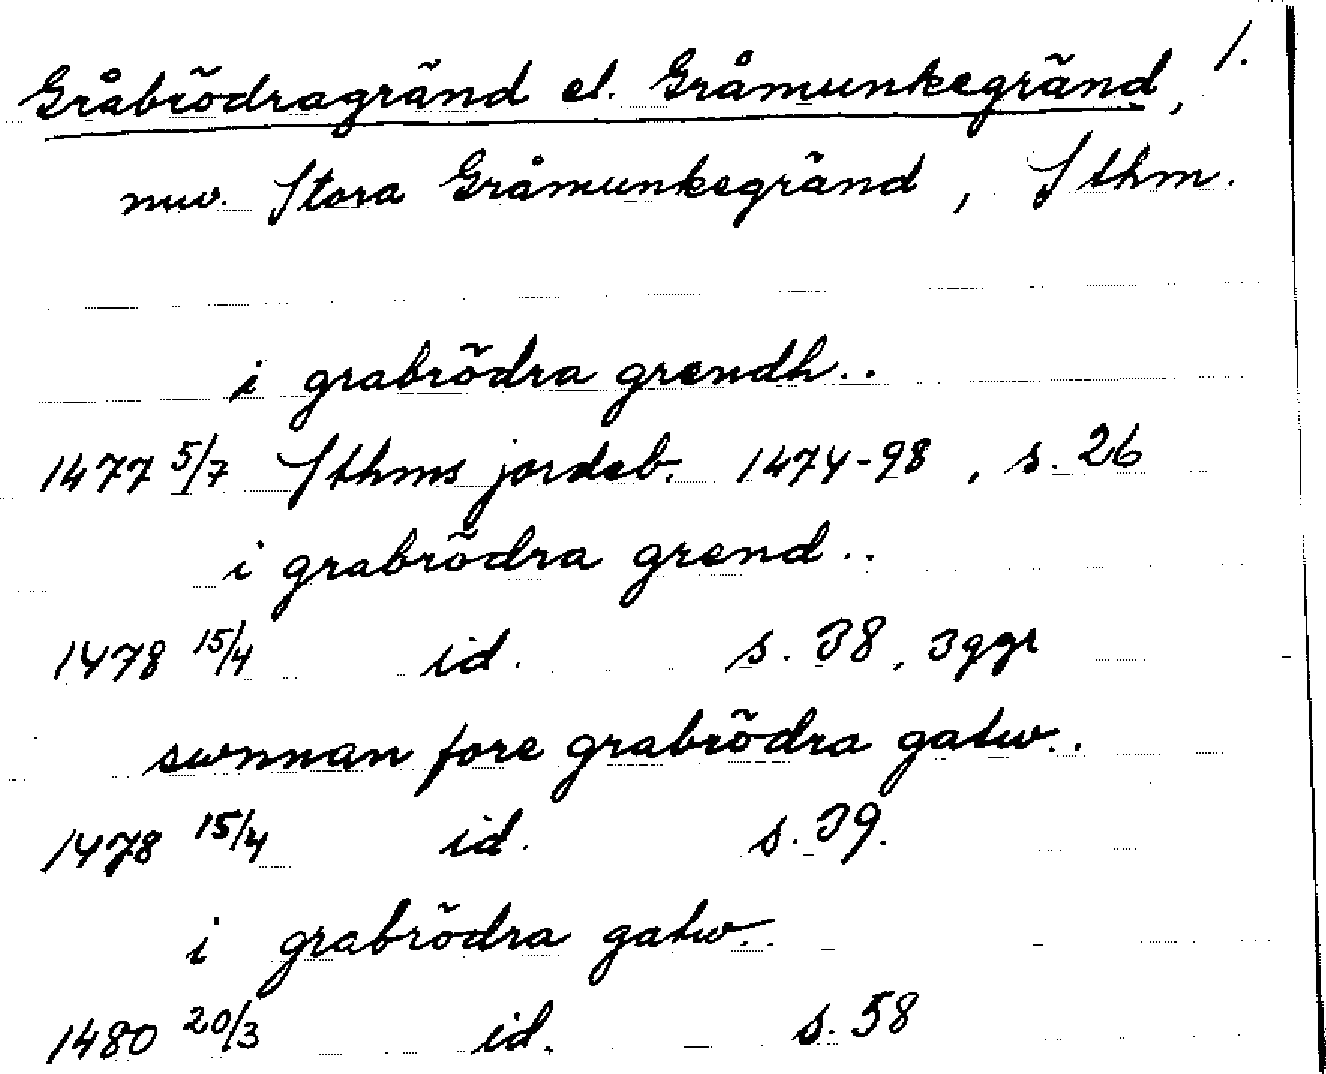 1.
Gråbrödragränd el. Gråmunkegränd,
nuv. Stora Gråmunkegränd, Sthm.
i grabrödra grendh..
1477 5/7 Sthms jordeb. 1474-98, s. 26
i grabrödra grend..
1478 15/4 id. s. 38, 3ggr
swnnan fore grabrödra gatw..
1478 15/4 id. s. 39.
i grabrödra gatw..
1480 20/3 id. s. 58